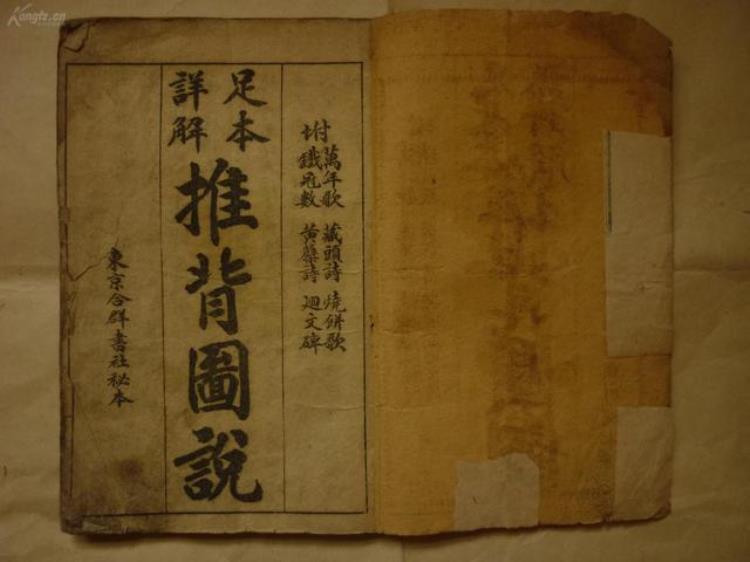 附萬年歌 藏頭詩 燒餅歌
鐵冠數 黃蘗詩 迴文碑
足本
詳解
推背圖說
東京合群書社秘本
Kongfz.cn